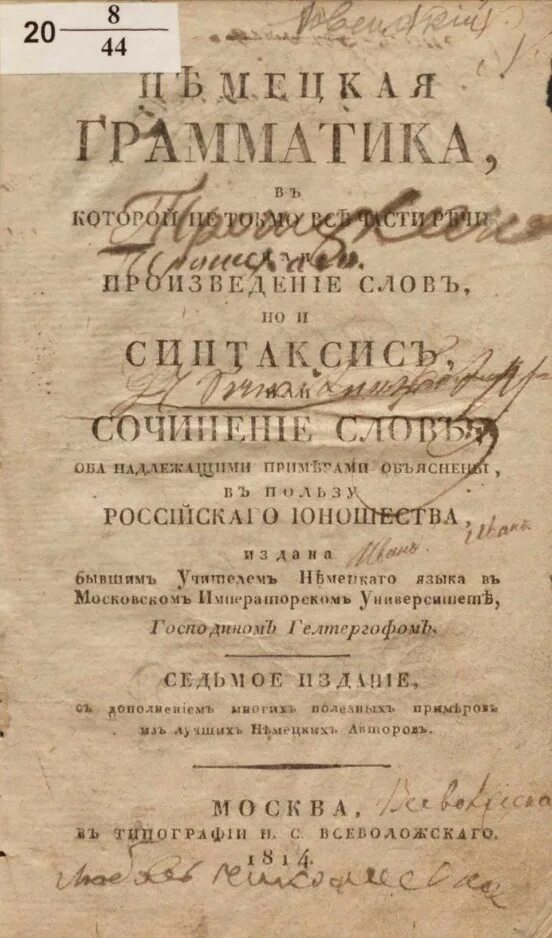 20 8
44
НѢМЕЦКАЯ
ГРАММАТИКА,
ВЪ
КОТОРОЙ НЕ ТОКМО ВСѢ ЧАСТИ РѢЧИ
ПРОИЗВЕДЕНІЕ СЛОВЪ,
НО И
СИНТАКСИСЪ,
ИЛИ
СОЧИНЕНІЕ СЛОВЪ,
ОБА НАДЛЕЖАЩИМИ ПРИМѢРАМИ ОБЪЯСНЕНЫ,
ВЪ ПОЛЬЗУ
РОССІЙСКАГО ЮНОШЕСТВА,
Иванъ. Иванъ.
издана
бывшимъ Учителемъ Нѣмецкаго языка въ
Московскомъ Императорскомъ Университетѣ,
Господиномъ Гелтергофомъ.
СЕДЬМОЕ ИЗДАНІЕ,
съ дополненіемъ многихъ полезныхъ примѣровъ
изъ лучшихъ Нѣмецкихъ Авторовъ.
МОСКВА,
ВЪ ТИПОГРАФІИ Н. С. ВСЕВОЛОЖСКАГО.
1814.